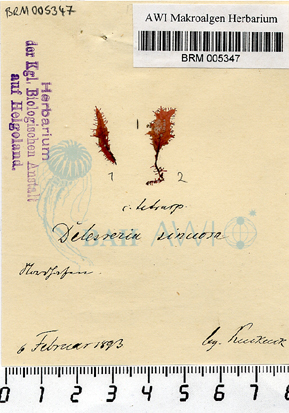 BRM 005347
AWI Makroalgen Herbarium
BRM 005347
Herbarium
der Kgl. Biologischen Anstalt
auf Helgoland.
1
1 2
c. tetrasp.
Delesseria sinuosa
BAH AWI
Nordhafen.
6 Februar 1893
leg. Kuckuck
0 1 2 3 4 5 6 7 8